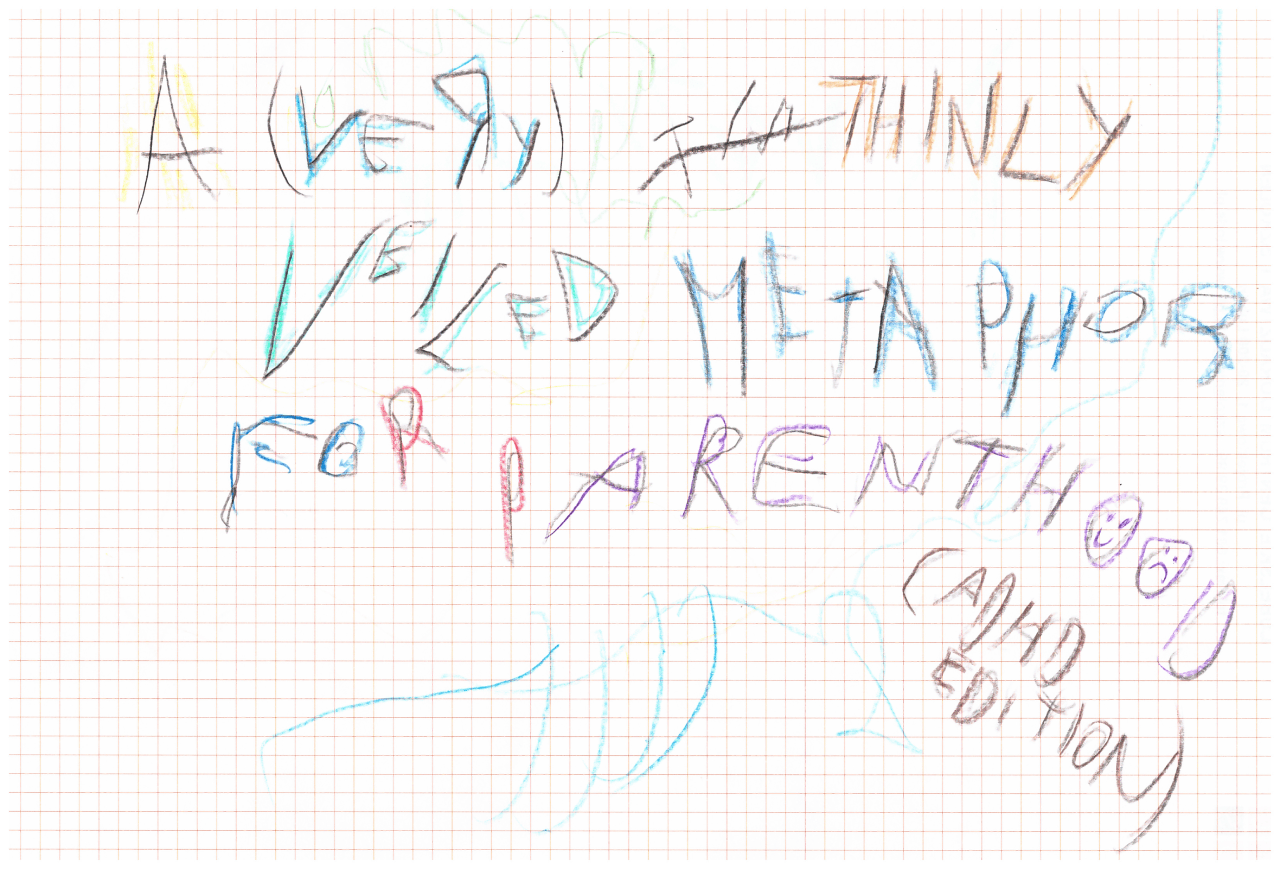 A (VERY) THINLY
VEILED METAPHOR
FOR PARENTHOOD
(ADHD
EDITION)